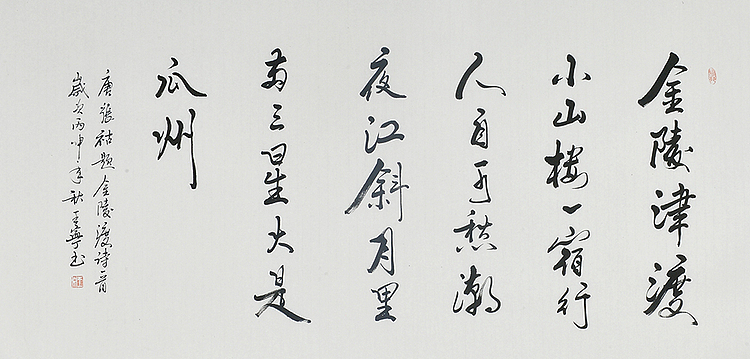 金陵津渡
小山楼一宿行
人自可愁潮
夜江斜月里
两三星火是
瓜州
唐張祜題金陵渡诗一首
歲次丙申年秋王寧书